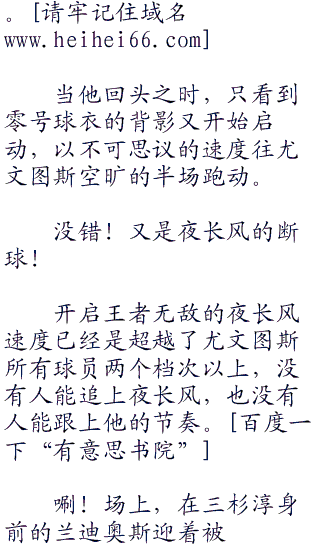 。[请牢记住域名
www.heihei66.com]
当他回头之时，只看到
零号球衣的背影又开始启
动，以不可思议的速度往尤
文图斯空旷的半场跑动。
没错！又是夜长风的断
球！
开启王者无敌的夜长风
速度已经是超越了尤文图斯
所有球员两个档次以上，没
有人能追上夜长风，也没有
人能跟上他的节奏。[百度一
下“有意思书院”]
唰！场上，在三杉淳身
前的兰迪奥斯迎着被